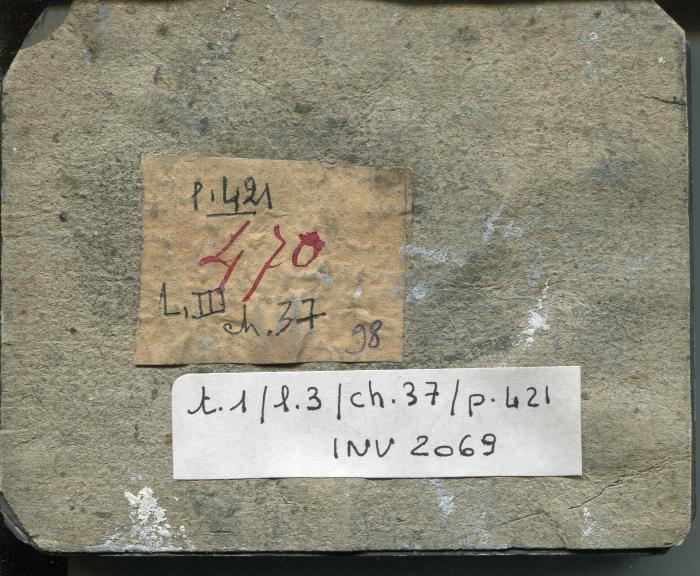 p.421
470
L.III
ch.37
98
t.1/l.3/ch.37/p.421
INV 2069